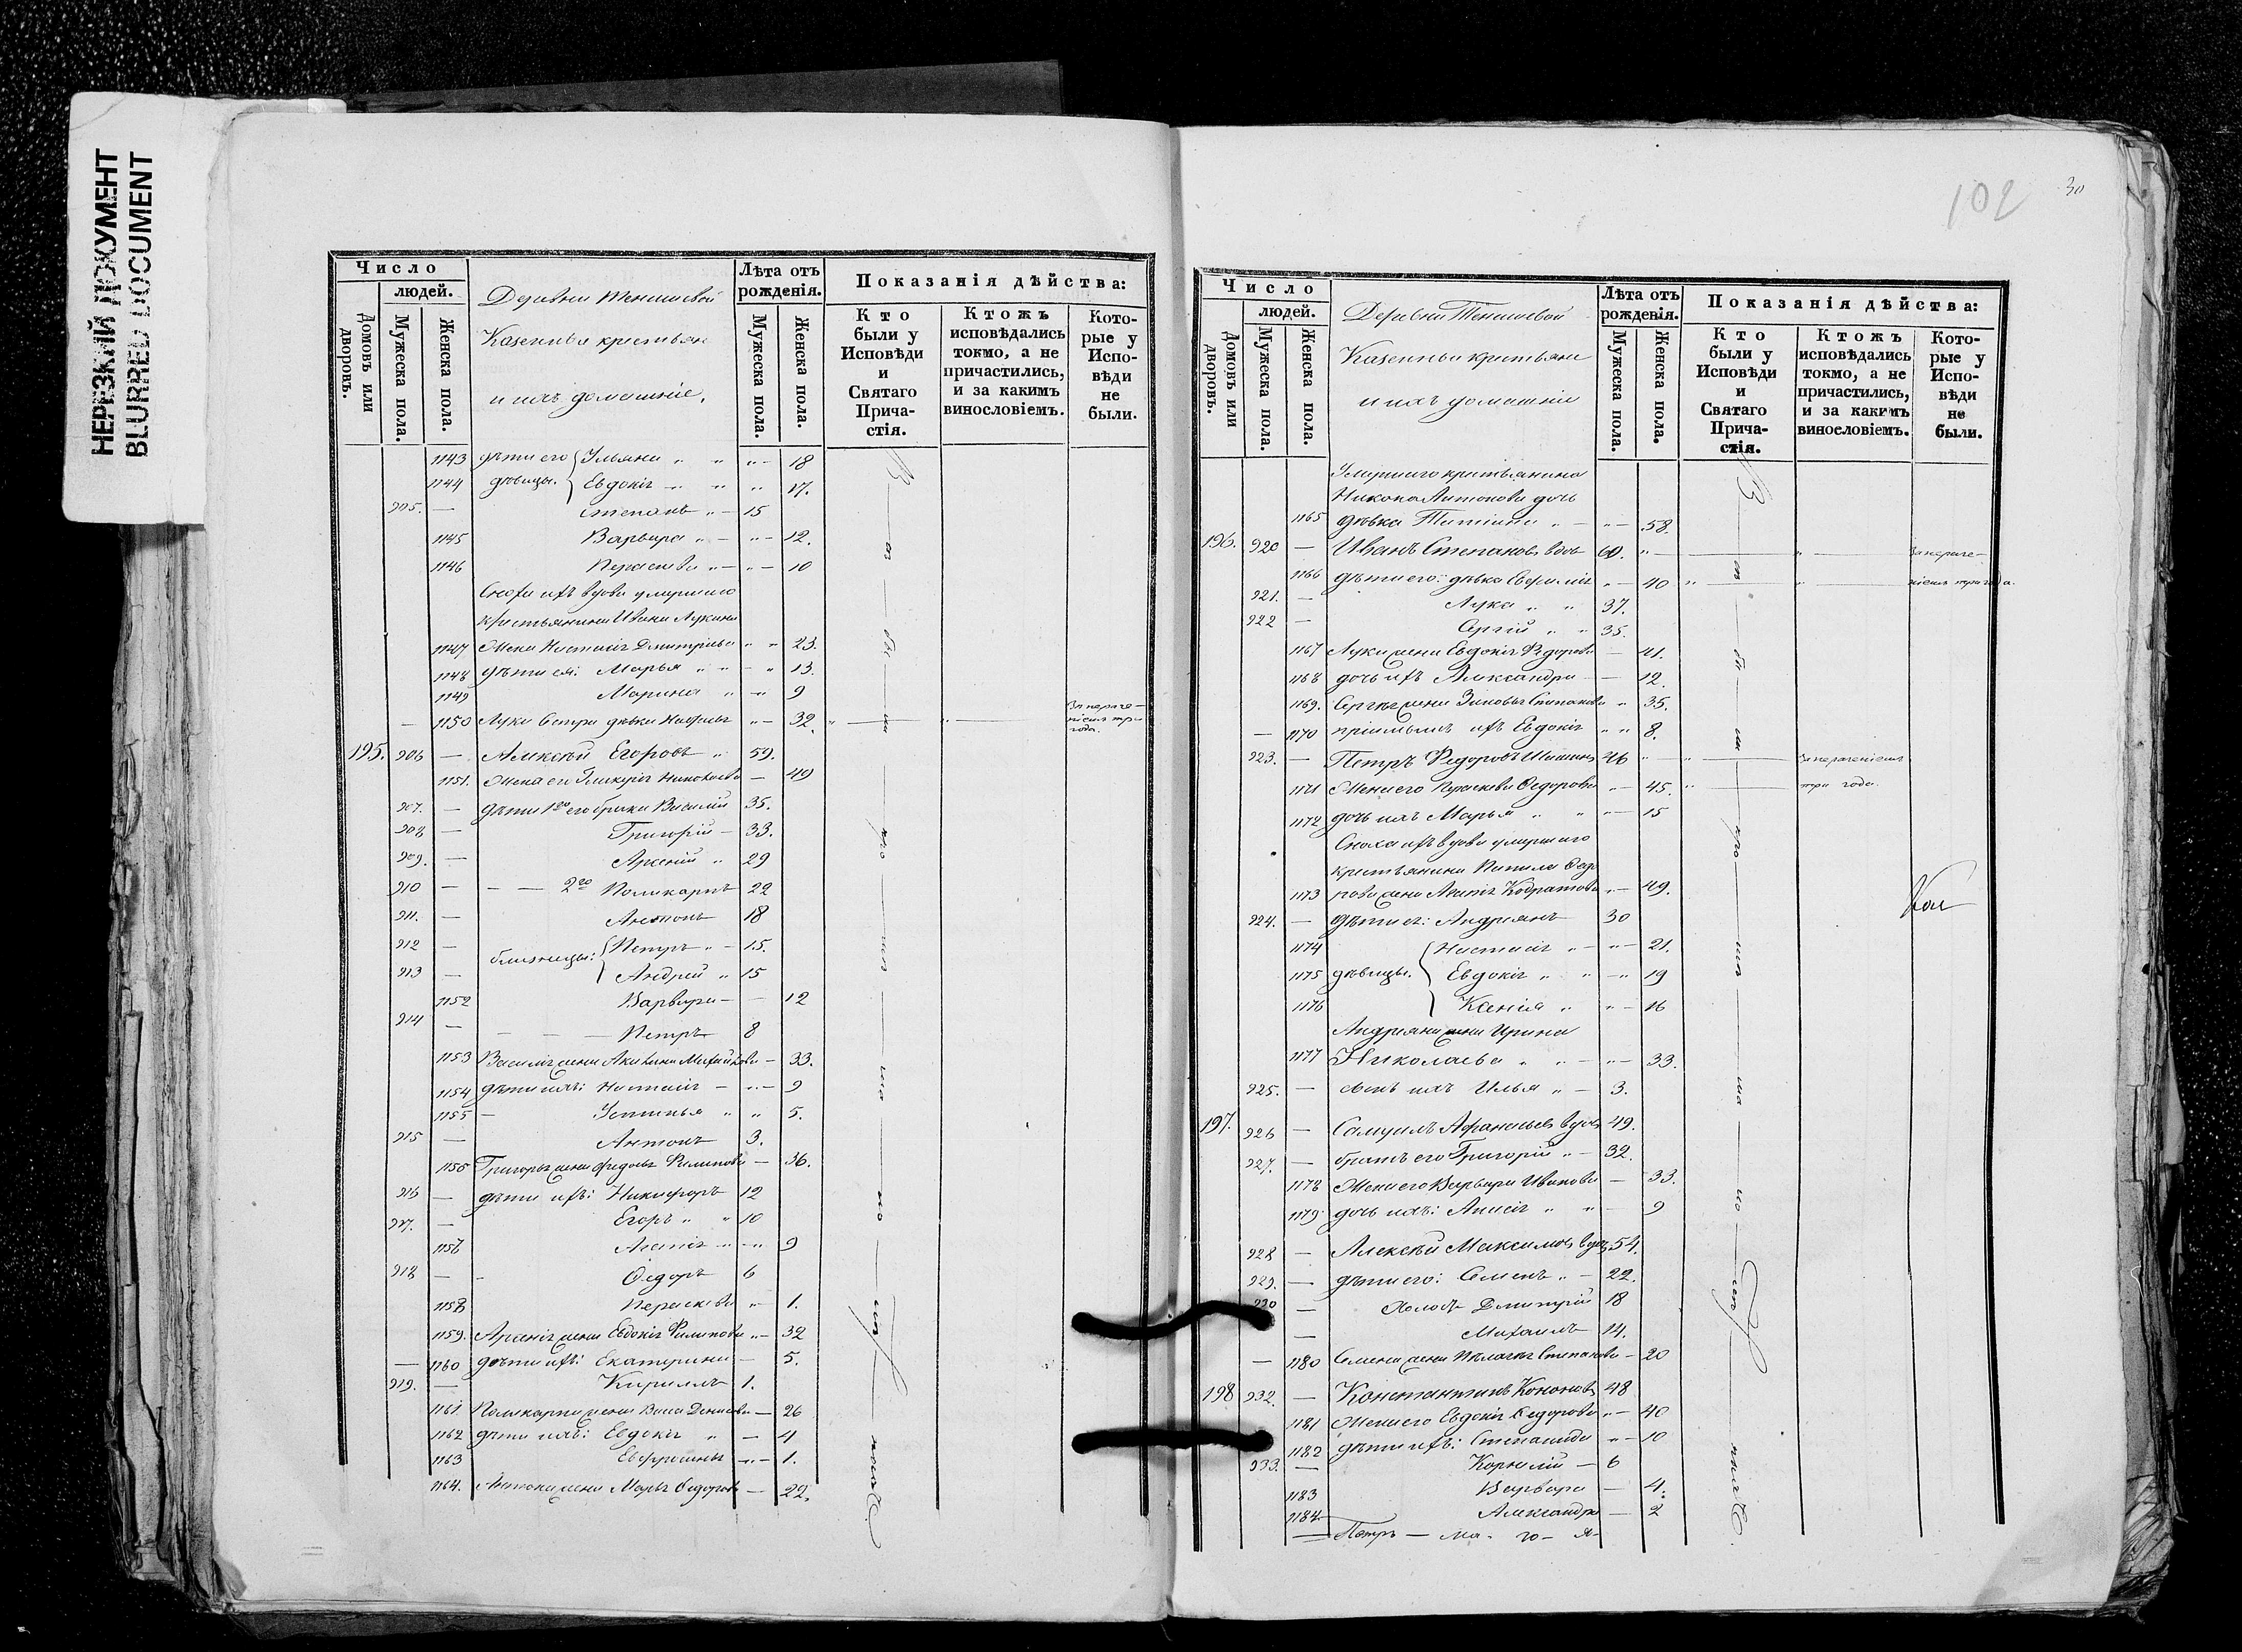 НЕРЕЗКИЙ ДОКУМЕНТ
BLURRED DOCUMENT
Число
людей.
Домовъ или дворовъ.
Мужеска пола.
Женска пола.
Деревни Теншевой
Казенныи крестьяне
и ихъ домашніе.
Лѣта отъ рожденія.
Мужеска пола.
Женска пола.
Показанія дѣйства:
Кто были у Исповѣди и Святаго Прича-стія.
Ктожъ исповѣдались токмо, а не причастились, и за какимъ винословіемъ.
Кото-рые у Испо-вѣди не были.
1143 дѣти его Ульяна „ „ „ — 18
1144 дѣвицы. Евдокія „ „ „ 17.
905. — Степанъ „ — 15
1145 Варвара „ — „ — 12.
1146 Параскева „ — „ — 10
Сноха ихъ вдова умершаго
крестьянина Ивана Лукина
1147 Жена Настасія Дмитріева „ „ 23.
1148 дѣти ея: Марья „ „ — „ 13.
1149 Марина „ — „ 9
— 1150 Луки сестра дѣвка „ — 32.
195. 906 — Алексѣй Егоровъ „ 59.
1151. Жена его Гликерія Николаева — 49
907. — дѣти 1го его брака Василій 35.
908 — Григорій — 33.
909. — Арсеній „ 29
910 — — — 2го Поликарпъ 22
911. — Антонъ 18
912 — близнецы: Петръ „ — 15.
913 — Андрей „ 15
1152 Варвара — — 12
914 — — — — Петръ 8
1153 Василія жена Акилина Михайлова — 33.
1154 дѣти ихъ: Настасія — „ — 9
1155 — Устинья „ „ 5.
915 — Антонъ 3.
1156 Григорья жена Федосья Филипова — 36.
916 — дѣти ихъ: Никифоръ 12
917. — Егоръ „ „ 10
1157 Агапія „ — „ 9
918 — - Ѳедоръ 6
1158 Параскева „ 1.
1159. Арсенія жена Евдокія Филипова „ — 32
— 1160 дѣти ихъ: Екатерина — 5.
919. — Кириллъ 1.
1161. Поликарпа жена Васса Денисова — 26
1162 дѣти ихъ: Евдокія „ — 4
1163 Евфросинья — „ — 1.
1164. Антона жена Марья Ѳедорова — 22.
102
30
Число
людей.
Домовъ или дворовъ.
Мужеска пола.
Женска пола.
Деревни Теншевой
Казенныи крестьяне
и ихъ домашніе
Лѣта отъ рожденія.
Мужеска пола.
Женска пола.
Показанія дѣйства:
Кто были у Исповѣди и Святаго Прича-стія.
Ктожъ исповѣдались токмо, а не причастились, и за какимъ винословіемъ.
Кото-рые у Испо-вѣди не были.
Умершаго крестьянина
Никона Антонова дочь
1165 дѣвка Татіана „ — „ — 58.
196. 920 — Иванъ Степановъ вдовъ 60. „ —
1166 дѣти его: дѣвка Евфимія „ — 40
921. — Лука „ „ 37.
922 — Сергій „ „ 35.
1167 Луки жена Евдокія Ѳедорова — 41.
1168 дочь ихъ Александра — — 12.
1169. Сергѣя жена Зиновья Степанова „ 35.
— 1170 пріемышъ ихъ Евдокія „ „ 8.
923. — Петръ Федоровъ 46 „
1171 Жена его Параскева Ѳедорова „ — 45.
1172 дочь ихъ Марья „ „ „ — 15
Сноха ихъ вдова умершаго
крестьянина Ѳедо
1173 рова жена Агапія Кодратова „ — 49.
924. — дѣти ея: Андреянъ 30
1174 Настасія „ — „ — 21.
1175 дѣвицы. Евдокія „ „ — „ 19
1176 Ксенія „ „ — 16
Андреяна жена Ирина
1177 Николаева „ „ — „ — 33.
925. — сынъ ихъ Илья „ — 3.
197. 926 — Самуилъ Афанасьевъ вдовъ 49.
927. — братъ его Григорій „ — 32.
1178 Жена его Варвара Иванова — 33.
1179 дочь ихъ: Анисія „ „ — 9
928 — Алексѣй Максимовъ вдовъ 54.
929. — дѣти его: Семенъ „ — 22.
930 — Дмитрій 18
— Михаилъ 14.
— 1180 Семена жена Пелагія Степанова — 20
198 932. — Константинъ Кононовъ 48
1181 Жена его Евдокія Ѳедорова „ — 40
1182 дѣти ихъ: Степанида „ — 10
933. — Корнилій — 6
1183 Варвара — 4.
1184 Александра — 2